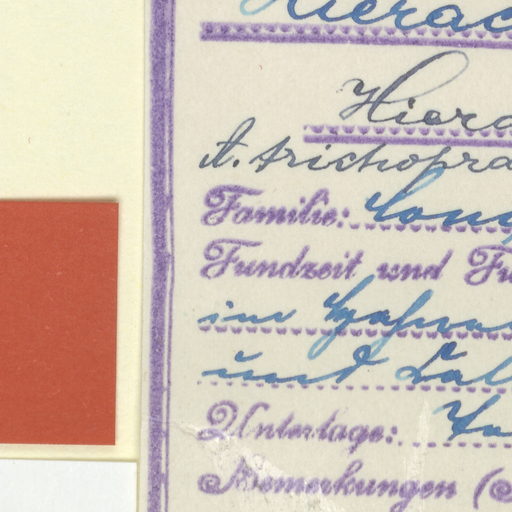 Hierac
Hiera
A. trichopra
Familie: Com
Fundzeit und Fu
im
und
Untertage:
Bemerkungen (